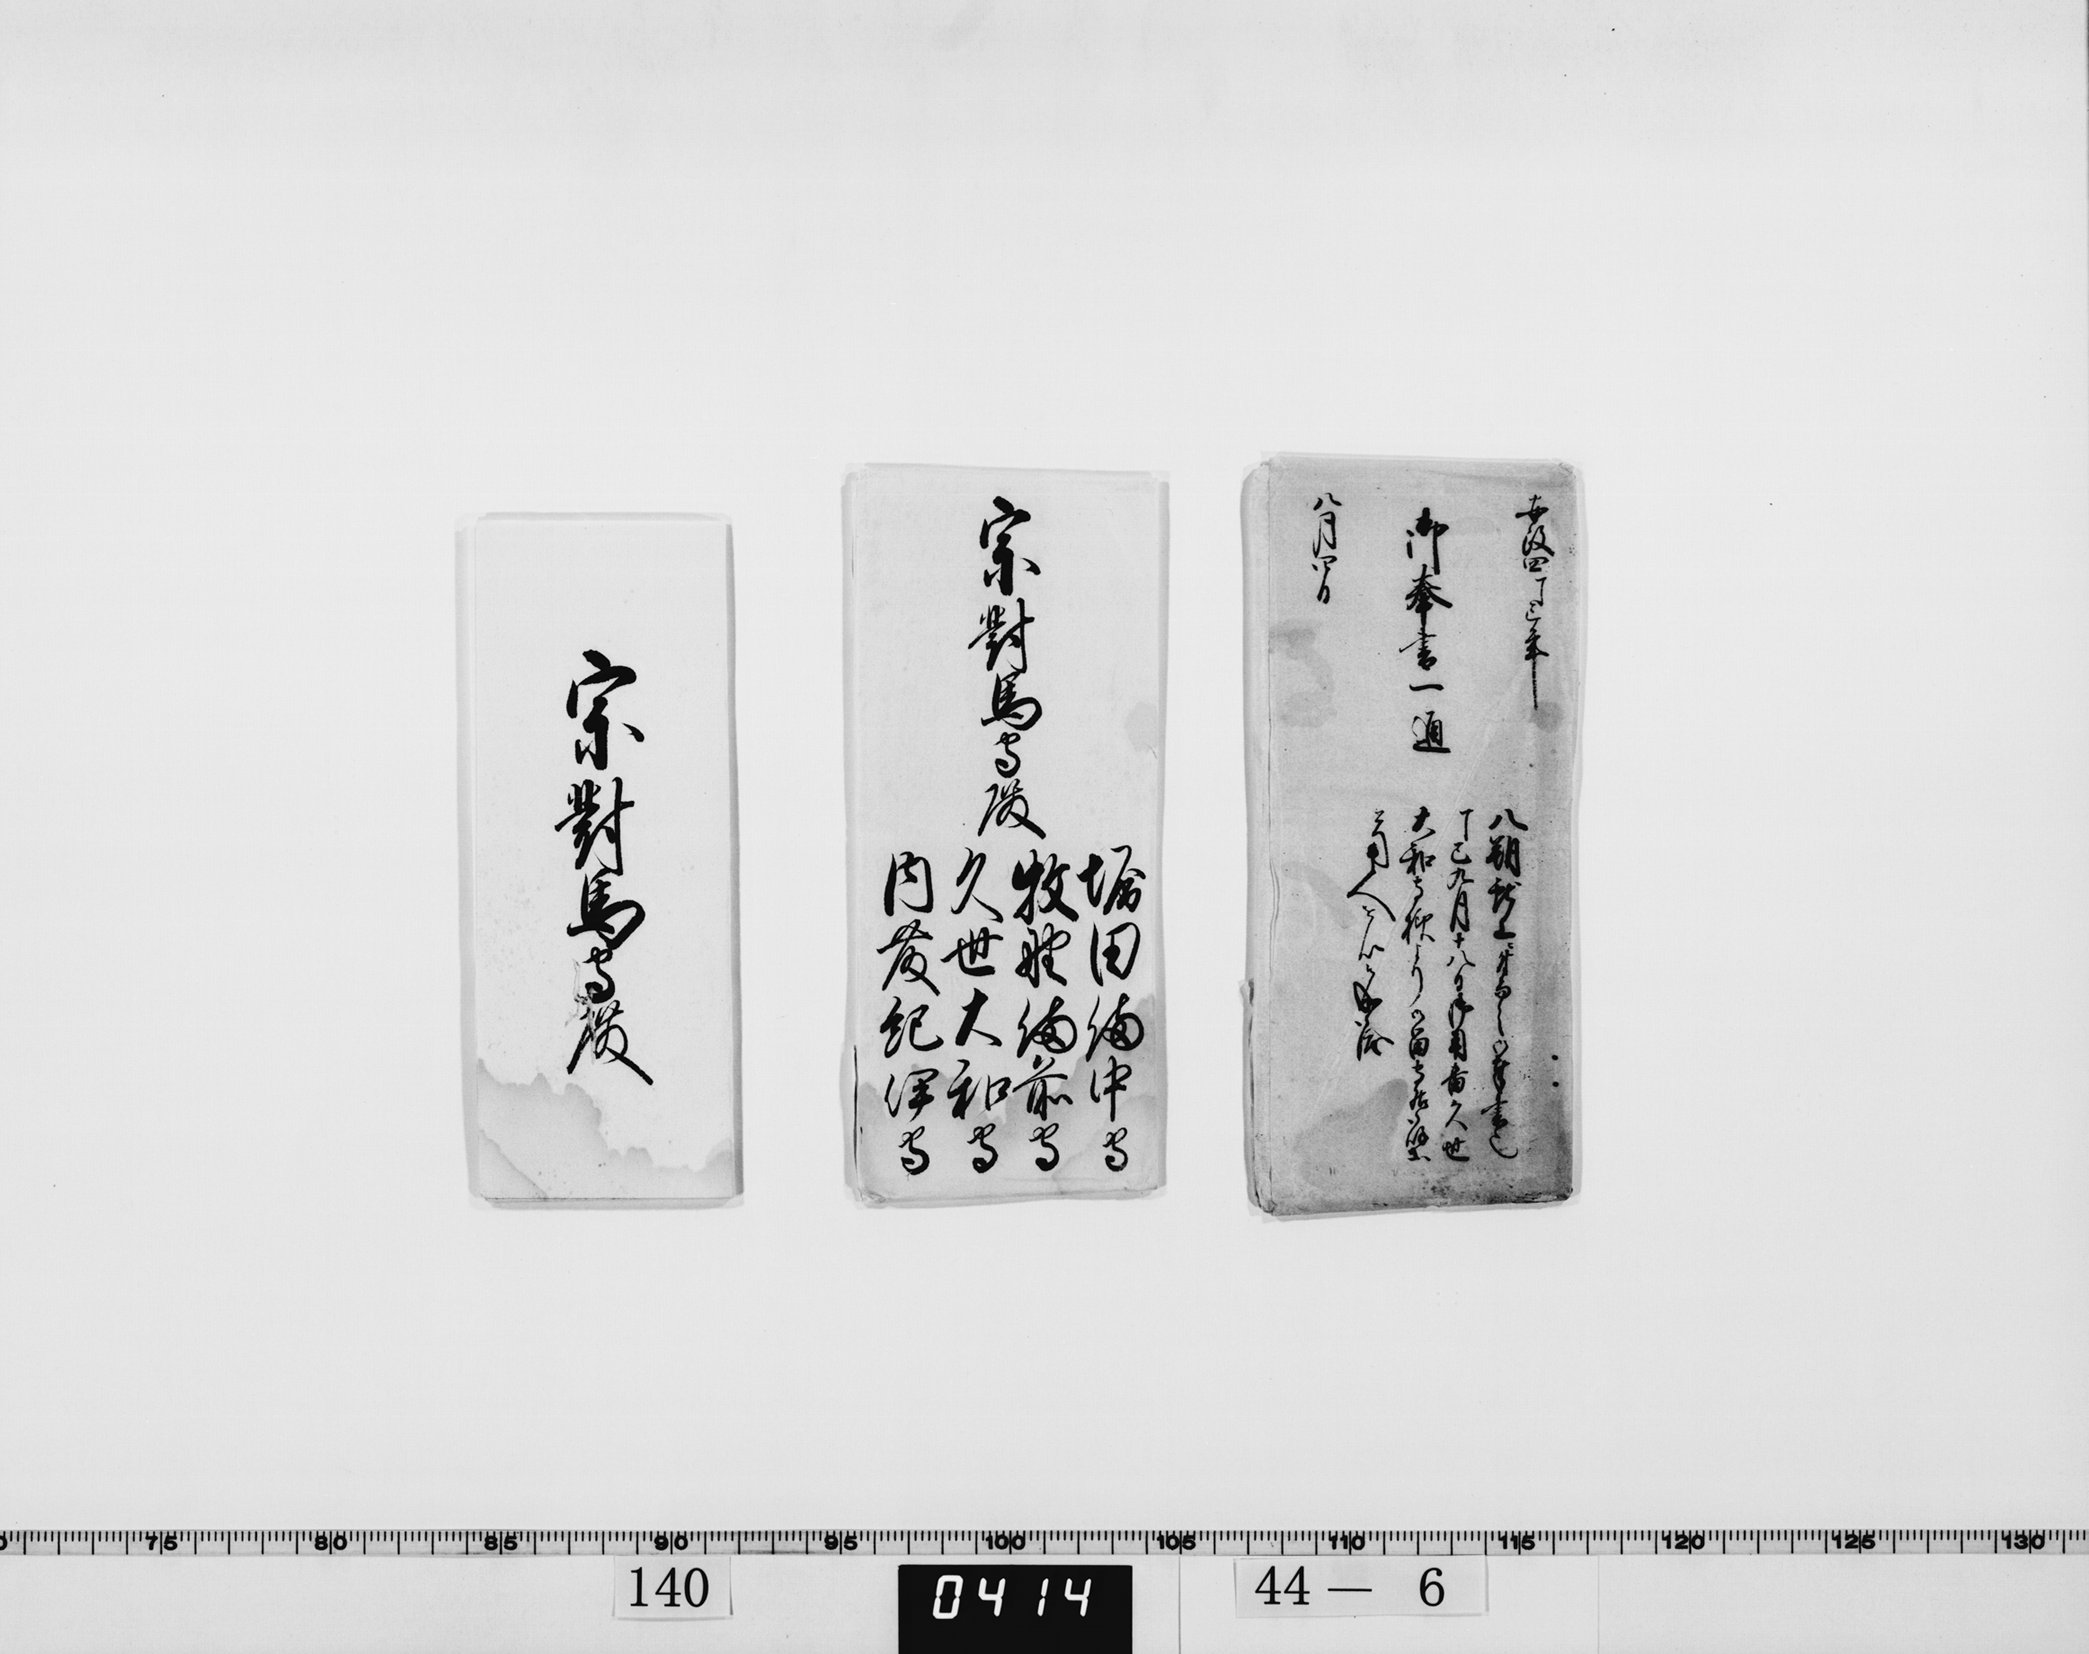 安政四丁巳年
御奉書一通
八月四日
八朔献上ニ付而之御奉書也
丁巳九月十八日御用番久世
大和守様より御留守居
用人を以御渡
宗對馬守殿
堀田備中守
牧野備前守
久世大和守
内藤紀伊守
宗對馬守殿
75 80 85 90 95 100 105 110 115 120 125 130
140
0414
44 — 6